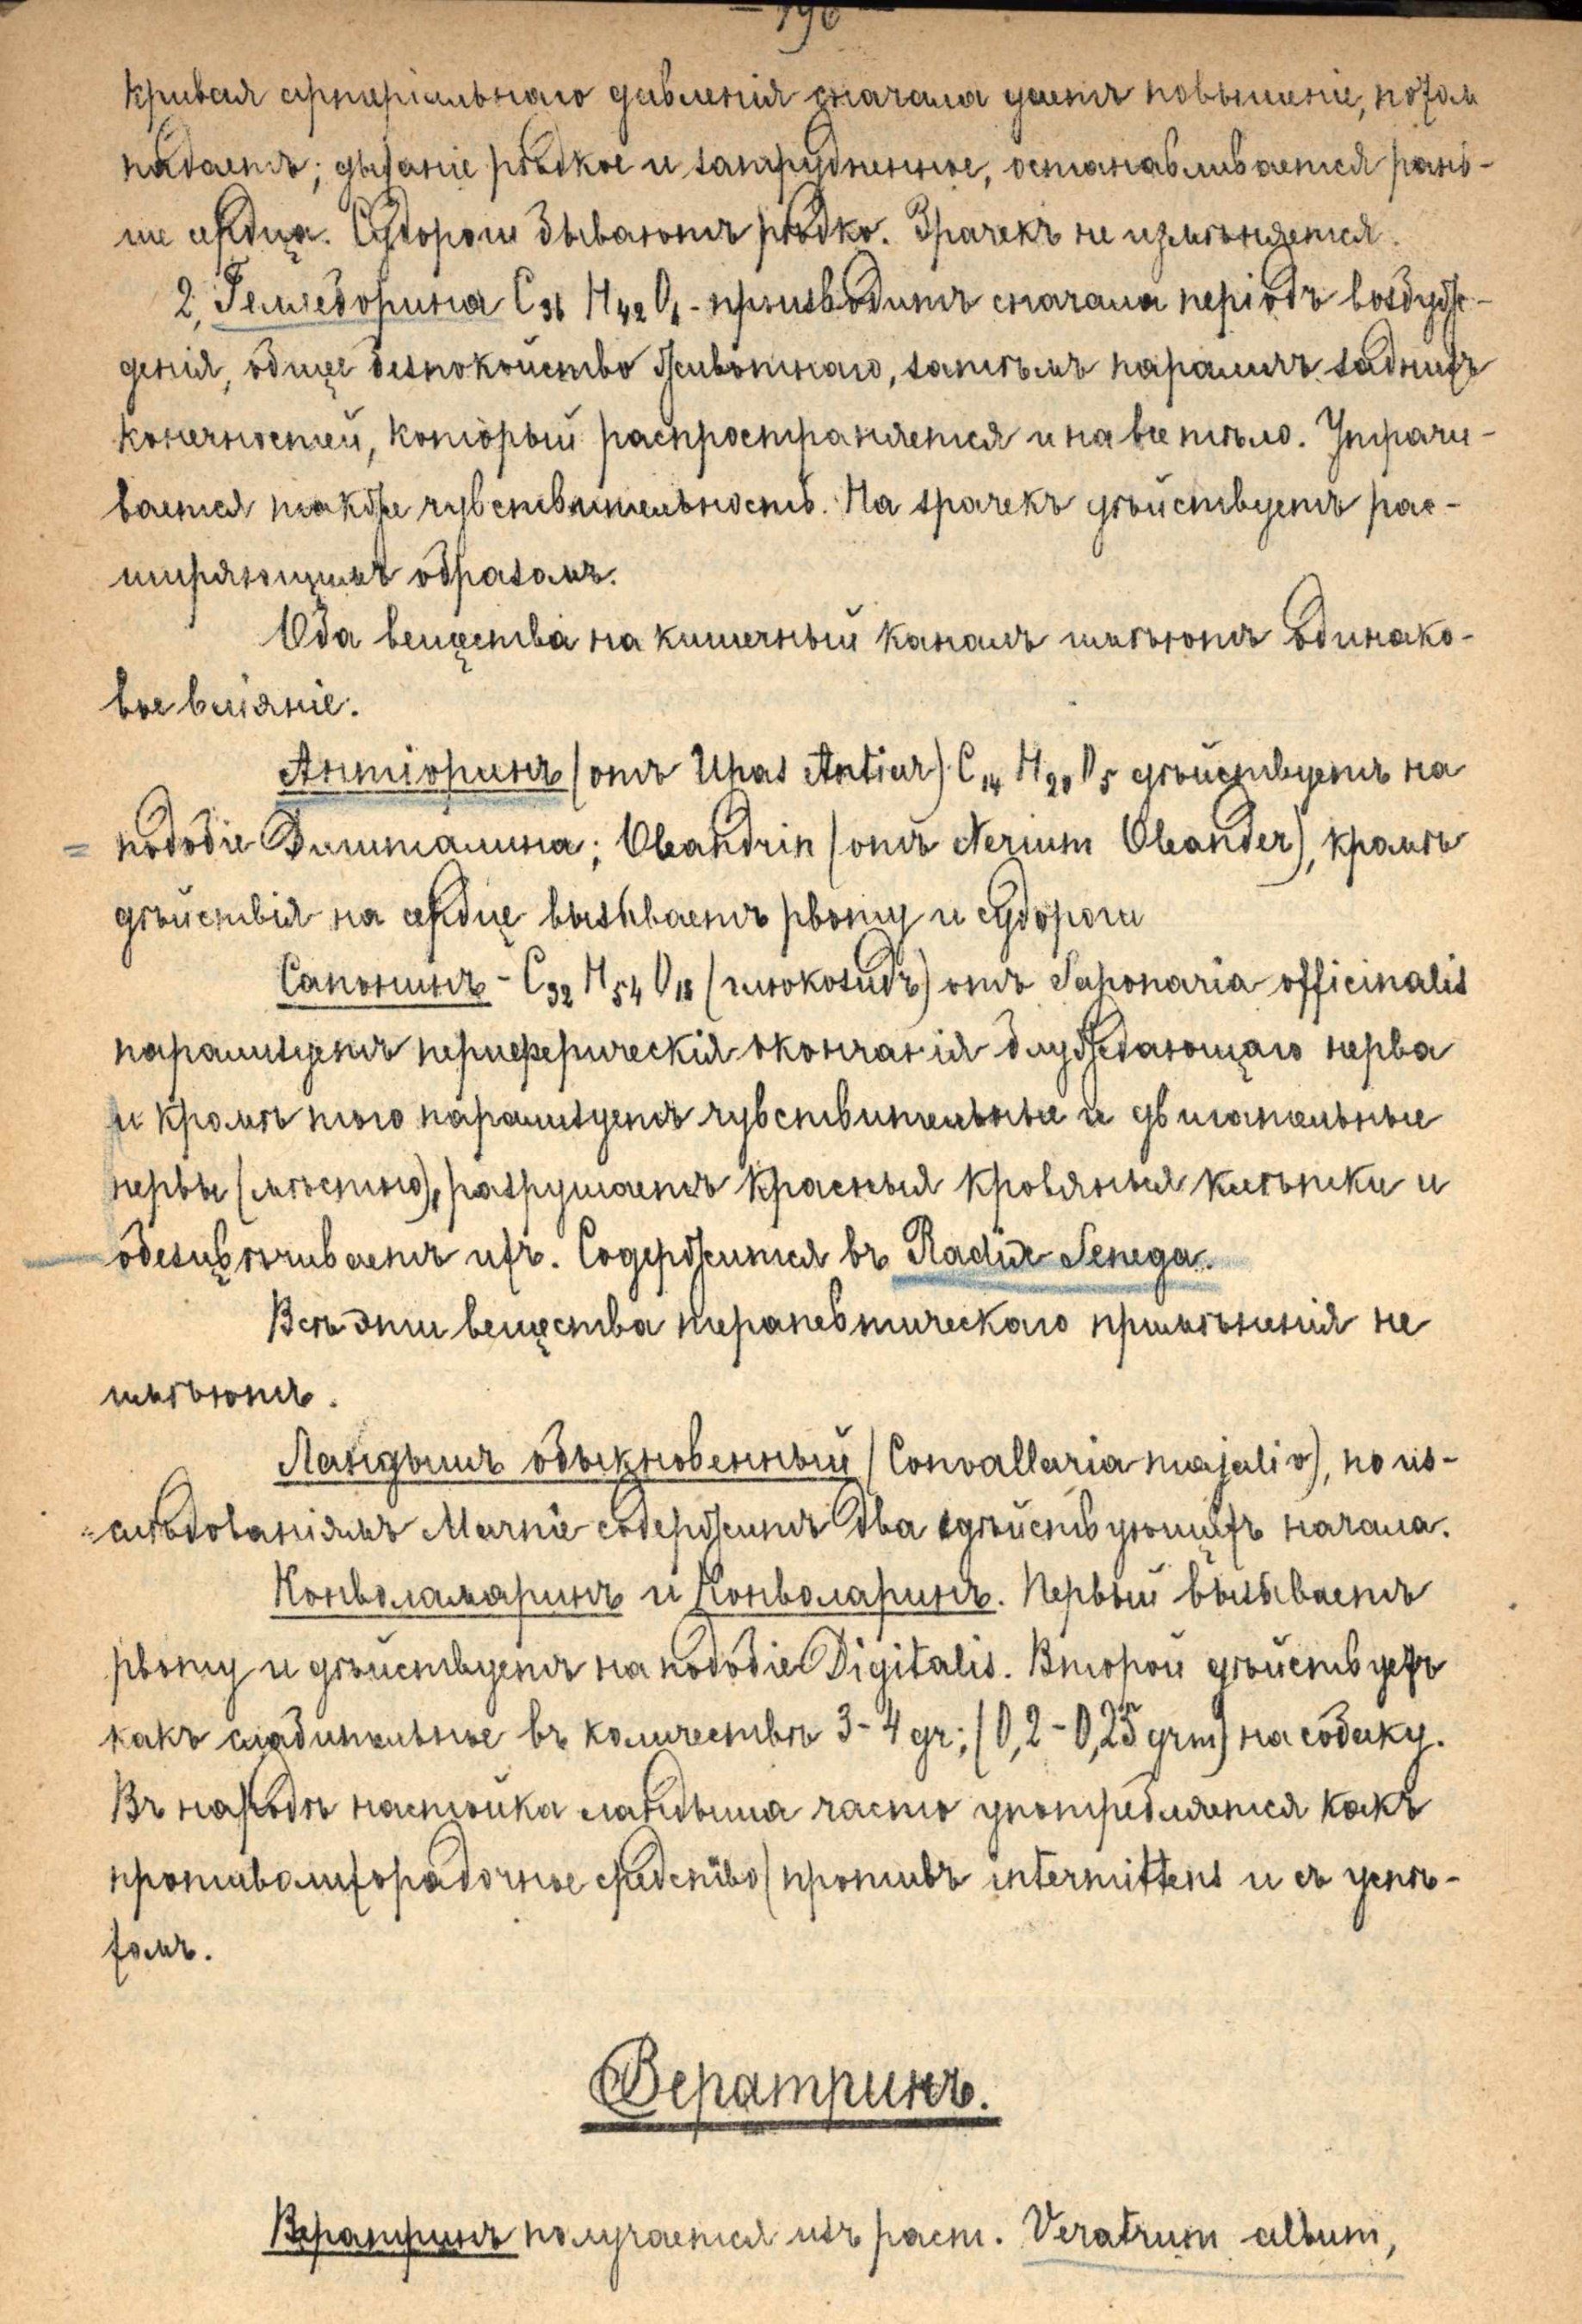 — 196 —
кривая артеріальнаго давленія сначала даетъ повышеніе, потом
падаетъ; дыханіе рѣдкое и затрудненное, останавливается рань-
ше сердца. Судороги бываютъ рѣдко. Зрачекъ не измѣняется.
2, Гелеборина C36 H42 O6 - производитъ сначала періодъ возбуж-
денія, общее безпокойство животнаго, затѣмъ параличъ заднихъ
конечностей, который распространяется и на все тѣло. Утрачи-
вается также чувствительность. На зрачекъ дѣйствуетъ рас-
ширяющимъ образомъ.
Оба вещества на кишечный каналъ имѣютъ одинако-
вое вліяніе.
Антіаринъ (отъ Upas Antiar) C14 H20 O5 дѣйствуетъ на
= подобіе Дигиталина; Oleandrin (отъ Nerium Oleander), кромѣ
дѣйствія на сердце вызываетъ рвоту и судороги
Сапонинъ - C32 H54 O18 (глюкозидъ) отъ Saponaria officinalis
парализуетъ периферическія окончанія блуждающаго нерва
и кромѣ того парализуетъ чувствительные и двигательные
нервы (мѣстно), разрушаетъ красныя кровяныя клѣтки и
обезцвѣчиваетъ ихъ. Содержится въ Radix Senega.
Всѣ эти вещества терапевтическаго примѣненія не
имѣютъ.
Ландышъ обыкновенный (Convallaria majalis), по из-
слѣдованіямъ Marmé содержитъ два дѣйствующихъ начала.
Конволамаринъ и Конволаринъ. Первый вызываетъ
рвоту и дѣйствуетъ на подобіе Digitalis. Второй дѣйствуетъ
какъ слабительное въ количествѣ 3-4 gr; (0,2-0,25 grm) на собаку.
Въ народѣ настойка ландыша часто употребляется какъ
противолихорадочное средство (противъ intermittens и съ успѣ-
хомъ.
Вератринъ.
Вератринъ получается изъ раст. Veratrum album,